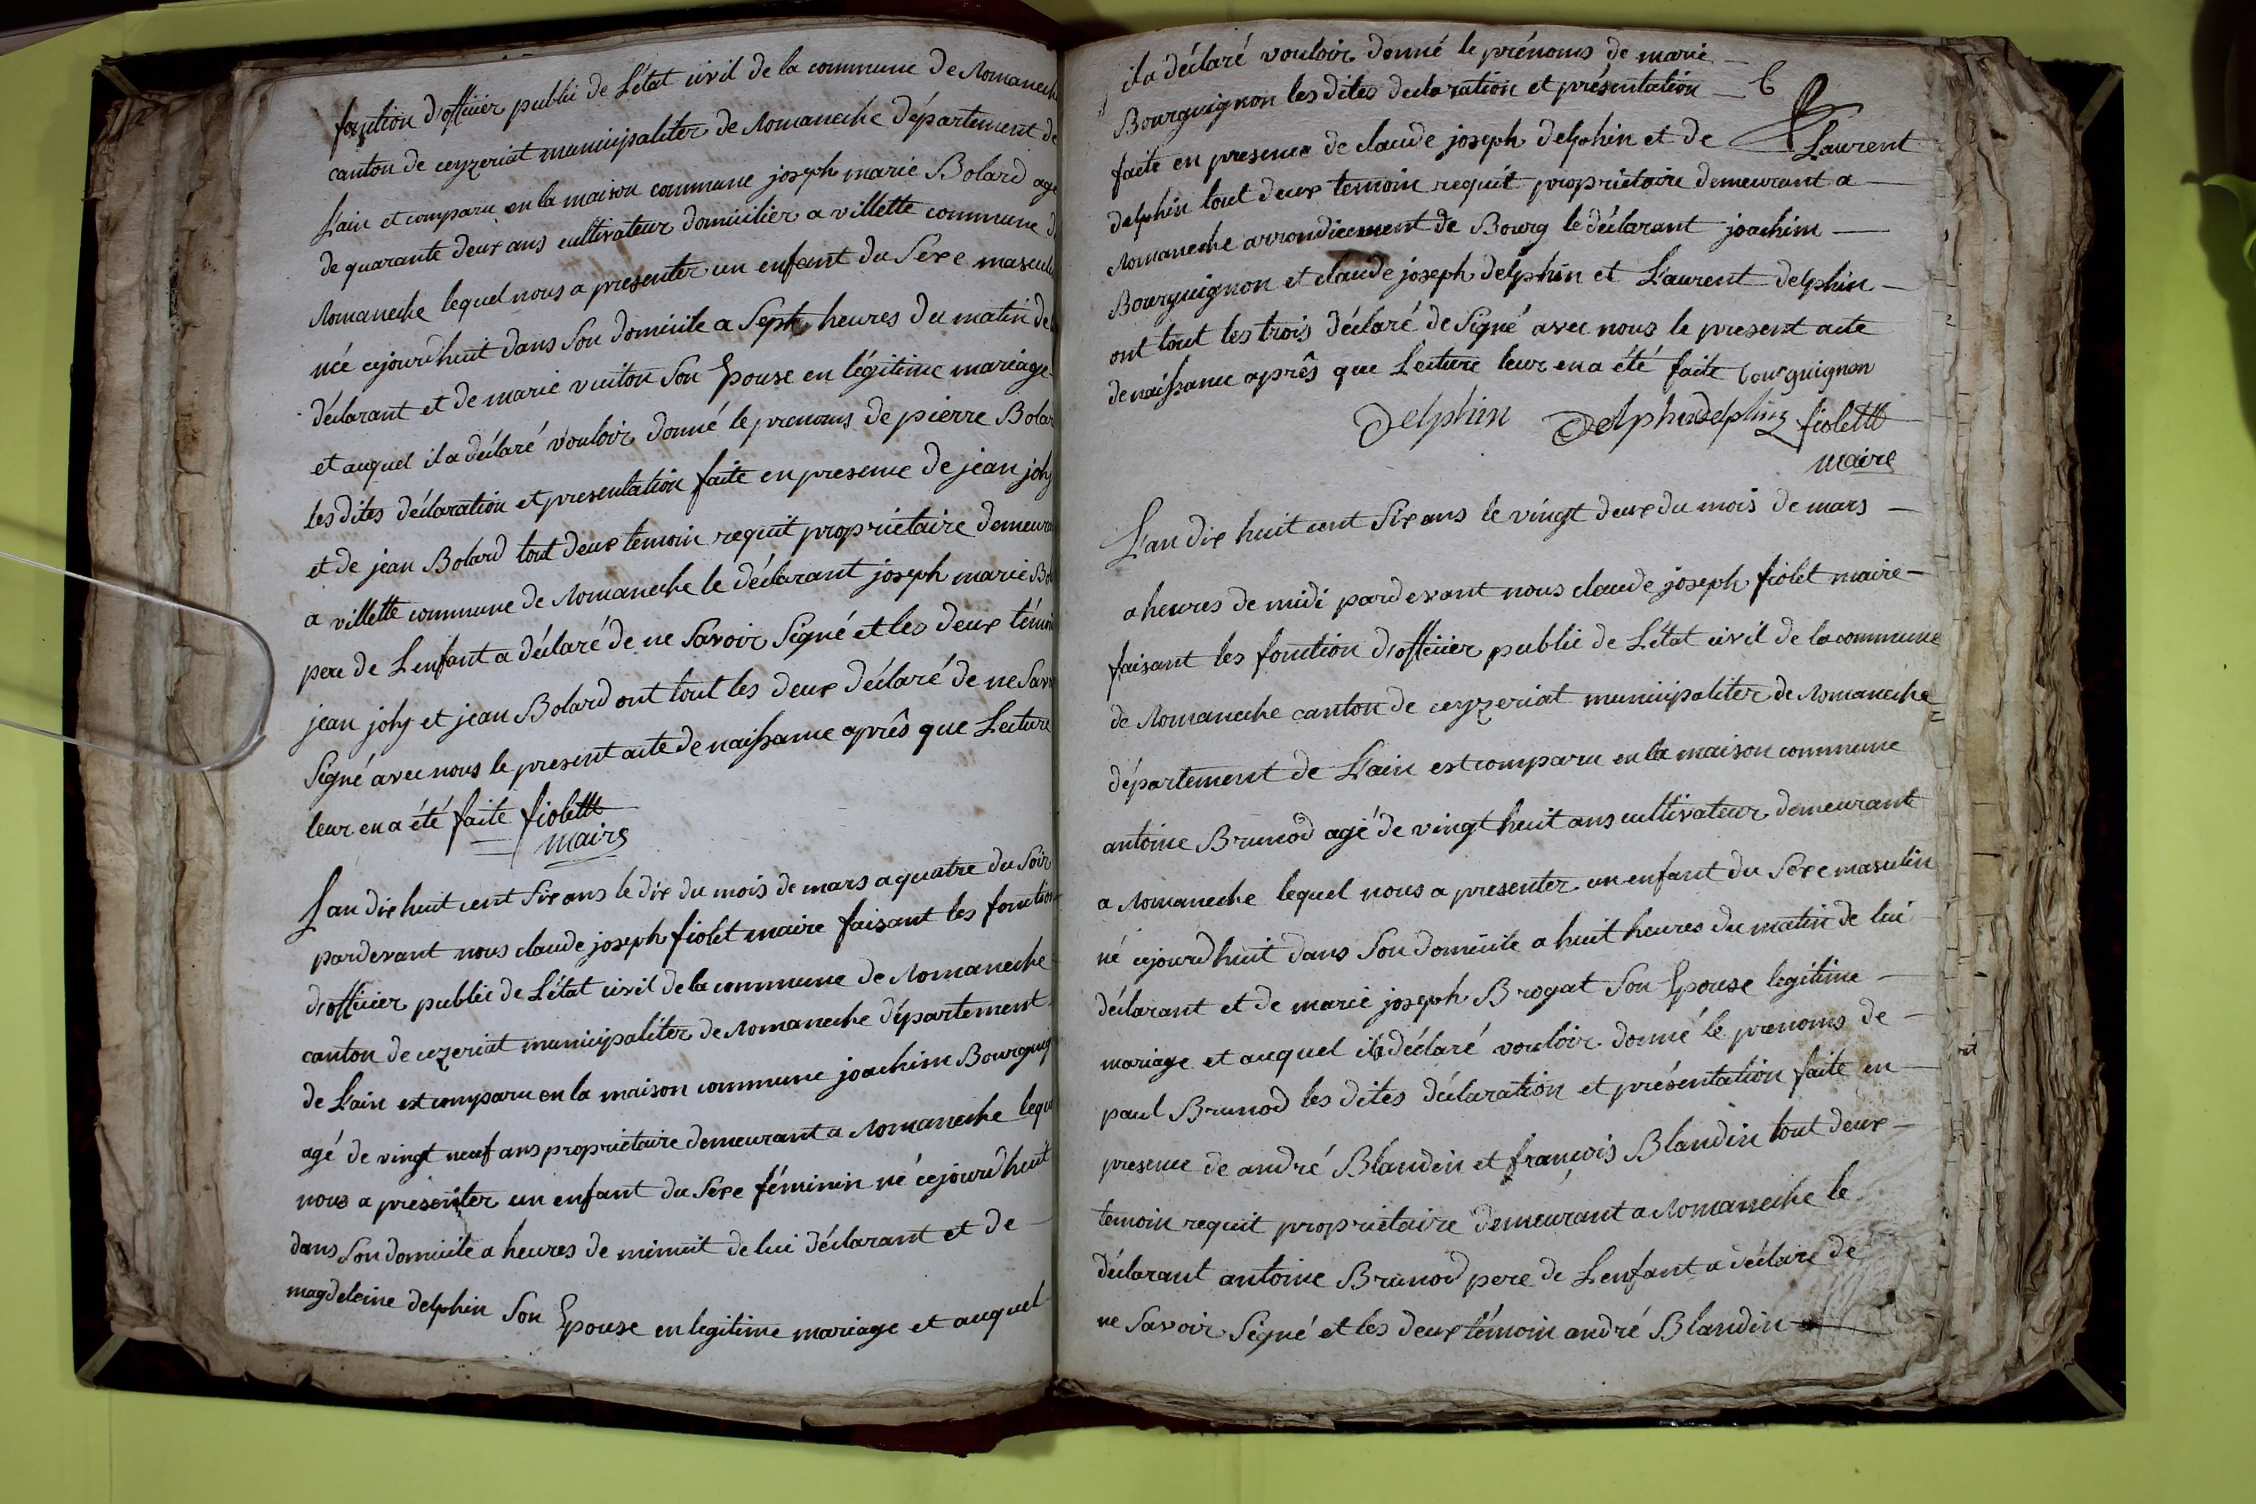 fontion d'officier public de L'état civil de la commune de Romaneche
canton de ceyzeriat municipaliter de Romaneche département de
L'ain et comparu en la maison commune joseph marie Bolard agé
de quarante deux ans cultivateur domicilier a villette commune de
Romaneche lequel nous a presenter un enfant du Sexe masculin
née cejourd'huit dans Son domicile a Sept heures du matin de
déclarant et de marie vuiton Son Epouse en légitime mariage
et auquel il a déclaré vouloir donné le prenoms de pierre Bolard
les dites déclaration et presentation faite en presence de jean joly
et de jean Bolard tout deux temoin requit propriétaire demeurant
a villette commune de Romaneche le déclarant joseph marie Bolard
pere de L'enfant a déclaré de ne Savoir Signé et les deux témoin
jean joly et jean Bolard ont tout les deux déclaré de ne Savoir
Signé avec nous le present acte de naissance après que Lecture
leur en a été faite fiolett
maire
L'an dix huit cent Six ans le dix du mois de mars a quatre du Soir
pardevant nous claude joseph fiolet maire faisant les fonction
d'officier public de L'état civil de la commune de Romaneche
canton de cezeriat municipaliter de Romaneche département
de L'ain est comparu en la maison commune joachim Bourguig
agé de vingt neuf ans propriétaire demeurant a Romaneche lequel
nous a presenter un enfant du Sexe féminin né cejourd'huit
dans Son domicile a heures de minuit de lui déclarant et de
magdeleine delphin Son Epouse en legitime mariage et auquel
il a déclaré vouloir donné le prénoms de marie
Bourguignon les dites declaration et présentation
6
faite en presence de claude joseph delphin et de Laurent
delphin tout deux temoin requit propriétaire demeurant a
Romaneche arrondicement de Bourg le déclarant joachim
Bourguignon et claude joseph delphin et Laurent delphin
ont tout les trois déclaré de Signé avec nous le present acte
de naissance après que Lecture leur en a été faite bourguignon
Delphin Delphin delphin fiolett
maire
L'an dix huit cent Six ans le vingt deux du mois de mars
a heures de midi pardevant nous claude joseph fiolet maire
faisant les fonction d'officier public de L'état civil de la commune
de Romaneche canton de ceyzeriat municipaliter de Romaneche
département de L'ain est comparu en la maison commune
antoine Brunod agé de vingt huit ans cultivateur demeurant
a Romaneche lequel nous a presenter un enfant du Sexe masculin
né cejourd'huit dans Son domicile a huit heures du matin de lui
déclarant et de marie joseph Brogat Son Epouse legitime
mariage et auquel il a déclaré vouloir donné le prenoms de
paul Brunod les dites déclaration et présentation faite en
presence de andré Blandin et françois Blandin tout deux
temoin requit propriétaire demeurant a Romaneche le
déclarant antoine Brunod pere de L'enfant a déclaré de
ne Savoir Signé et les deux témoin andré Blandin